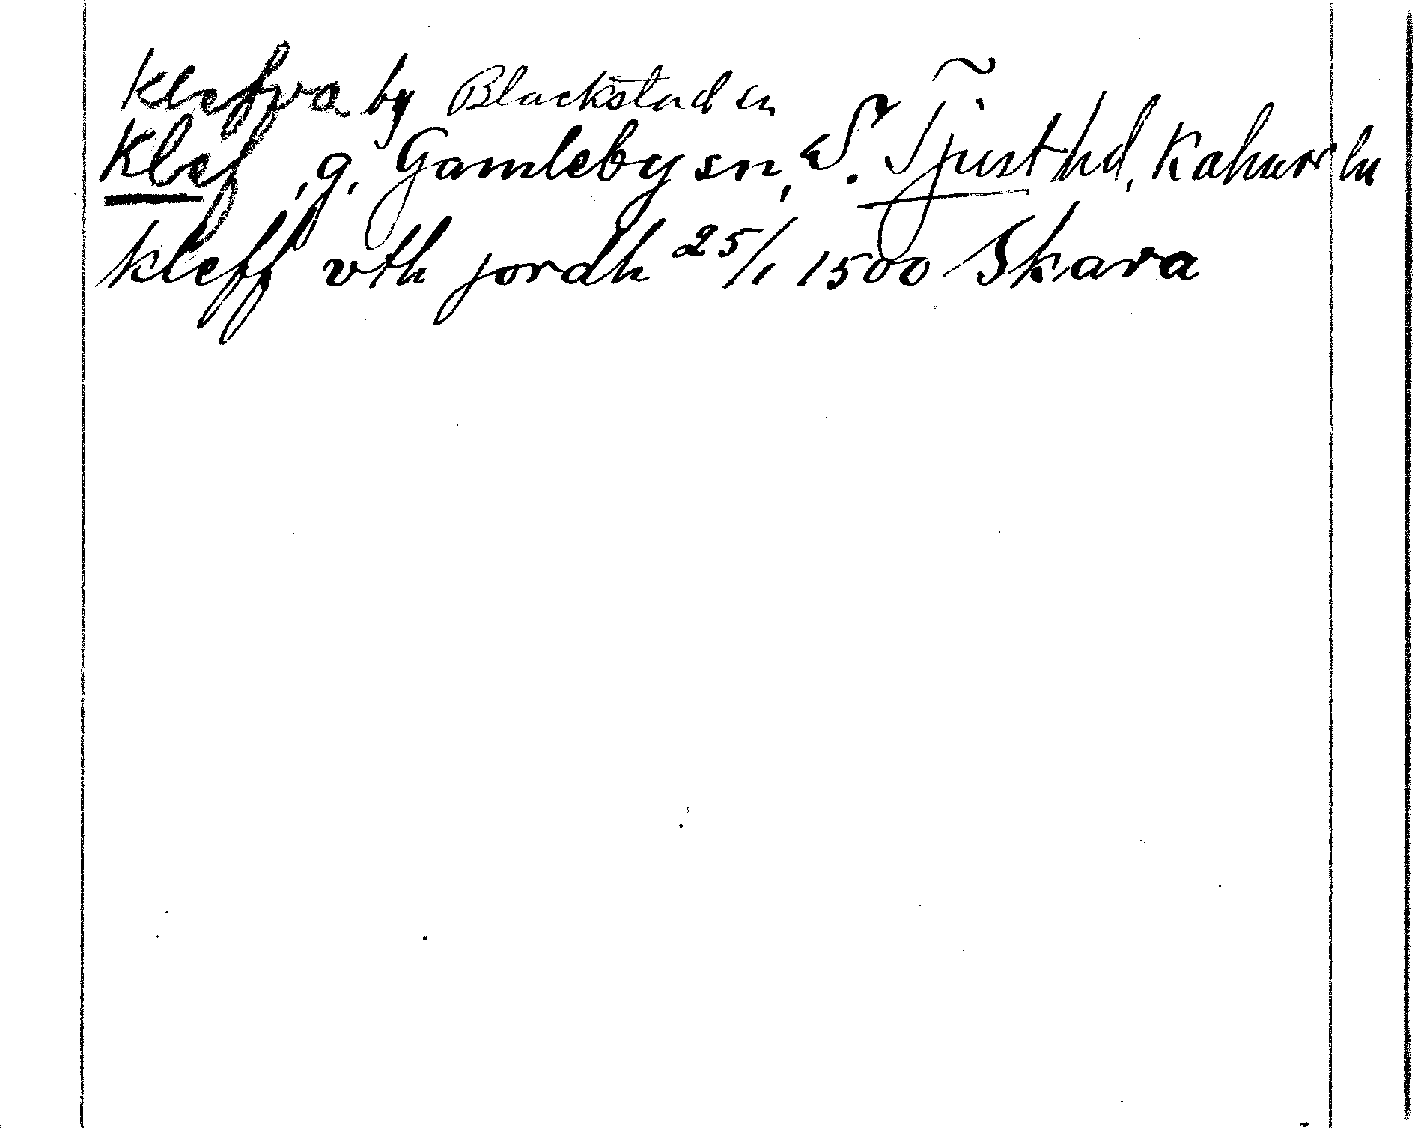 Klefva by Blackstad sn
Klef, g. Gamleby sn, S. Tjust hd, Kalmar ln
kleff vth jordh 25/1 1500 Skara